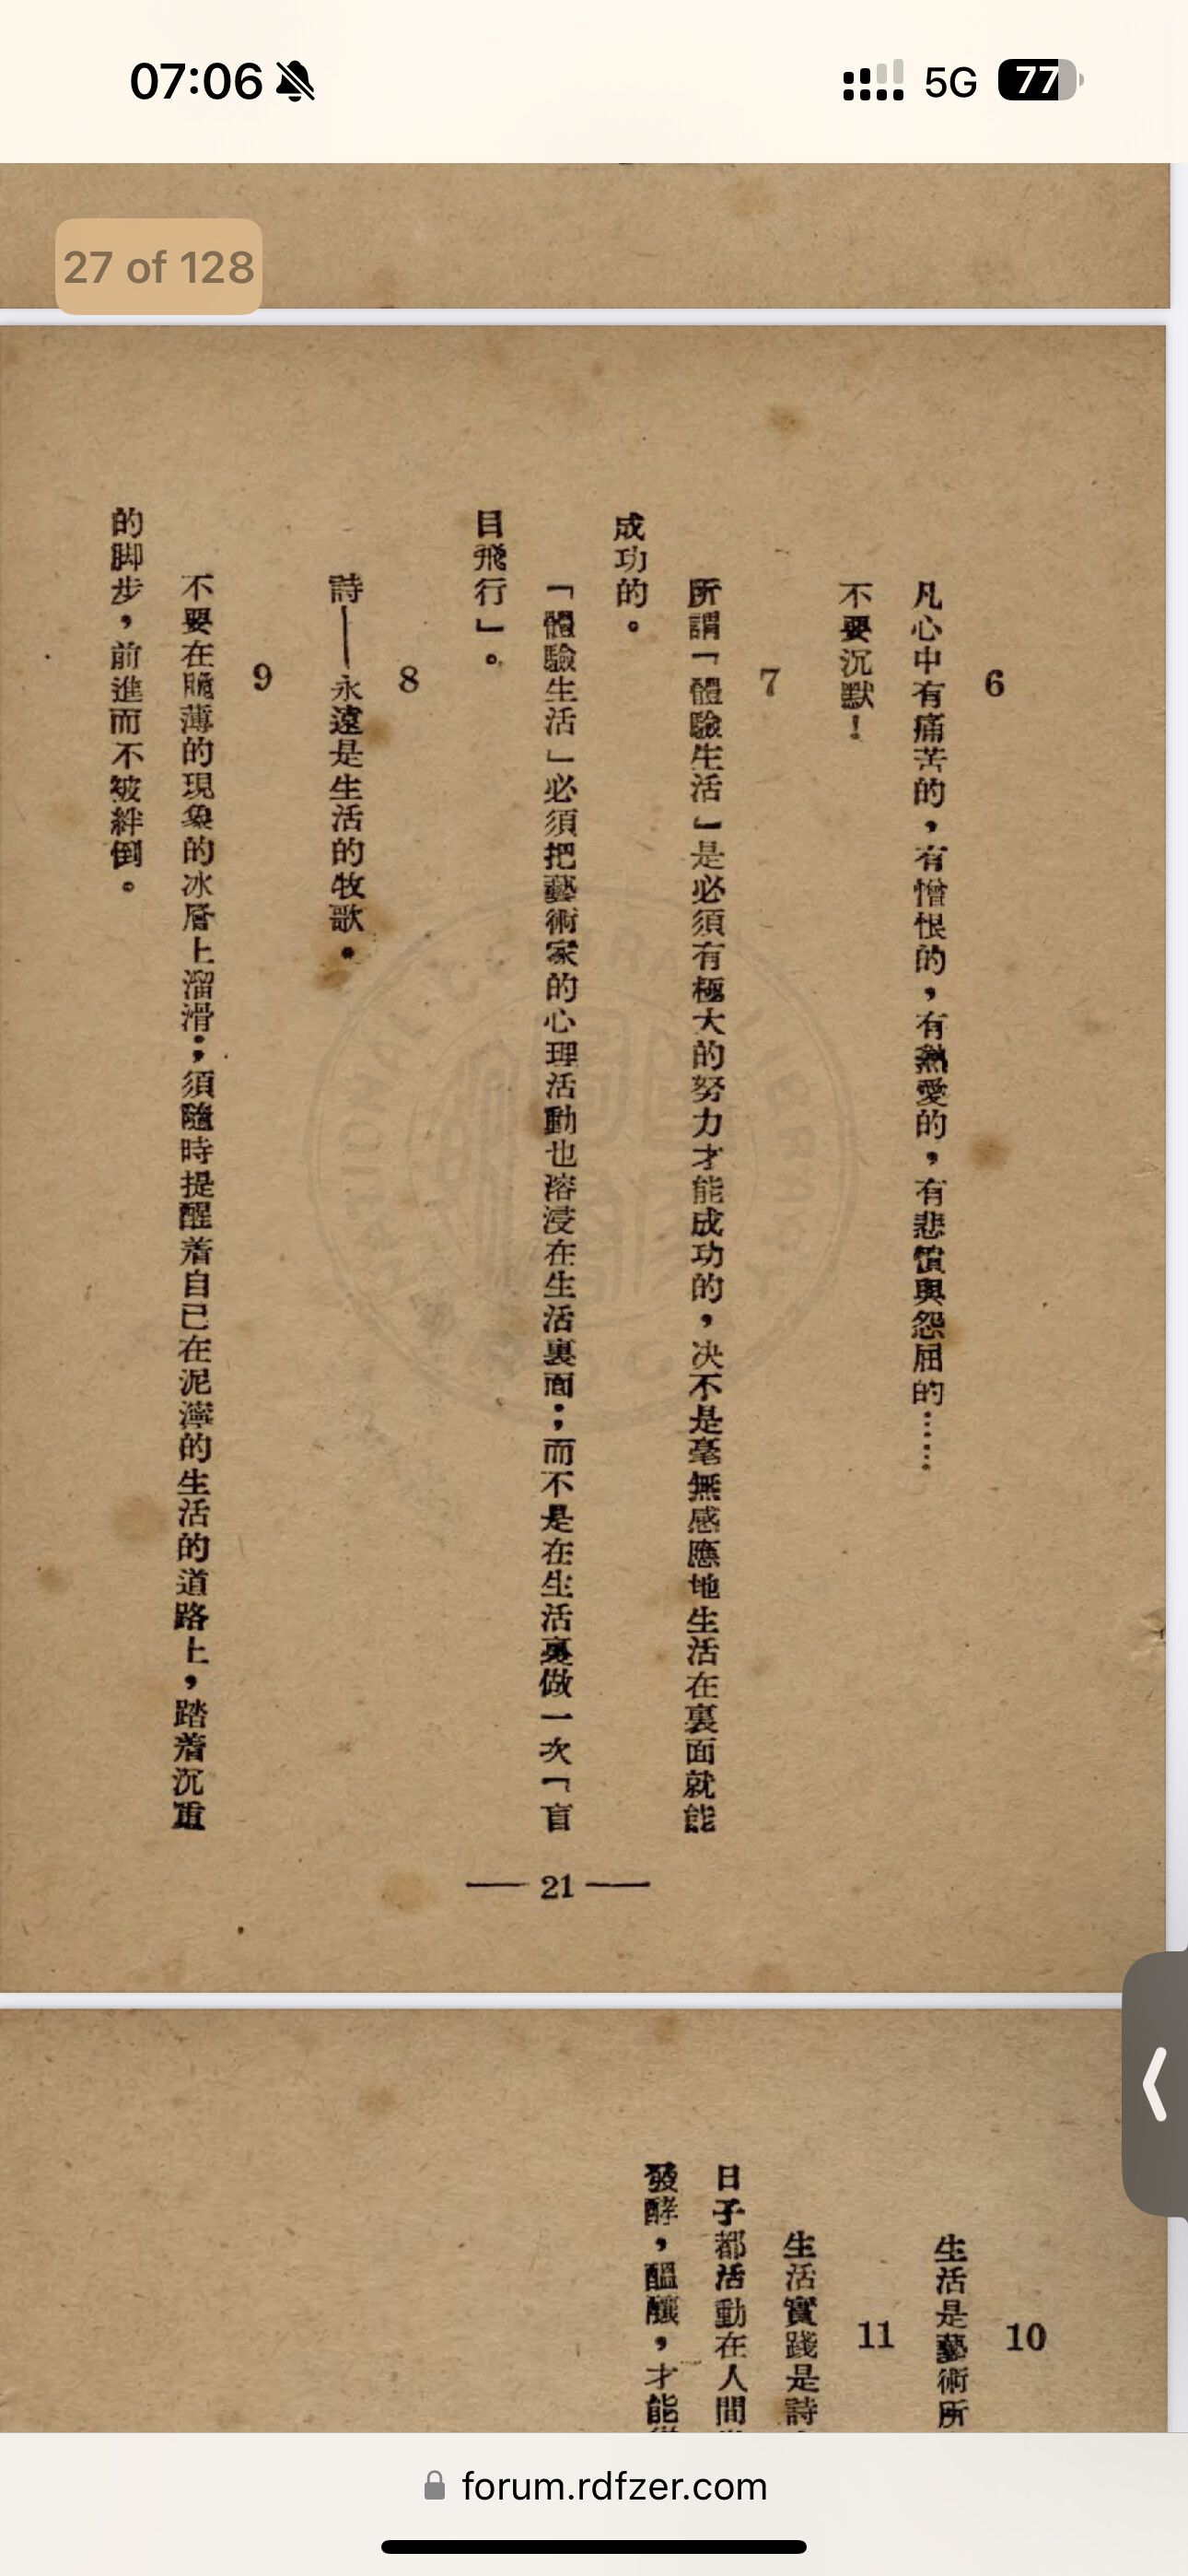 07:06
5G
77
27 of 128
6
凡心中有痛苦的，有憎恨的，有熱愛的，有悲憤與怨屈的……
不要沉默！
7
所謂「體驗生活」是必須有極大的努力才能成功的，决不是毫無感應地生活在裏面就能
成功的。
「體驗生活」必須把藝術家的心理活動也溶浸在生活裏面；而不是在生活裏做一次「盲
目飛行」。
8
詩——永遠是生活的牧歌。
9
不要在脆薄的現象的冰層上溜滑；須隨時提醒着自己在泥濘的生活的道路上，踏着沉重
的脚步，前進而不被絆倒。
— 21 —
10
生活是藝術所
11
生活實踐是詩
日子都活動在人間
發酵，醞釀，才能
forum.rdfzer.com